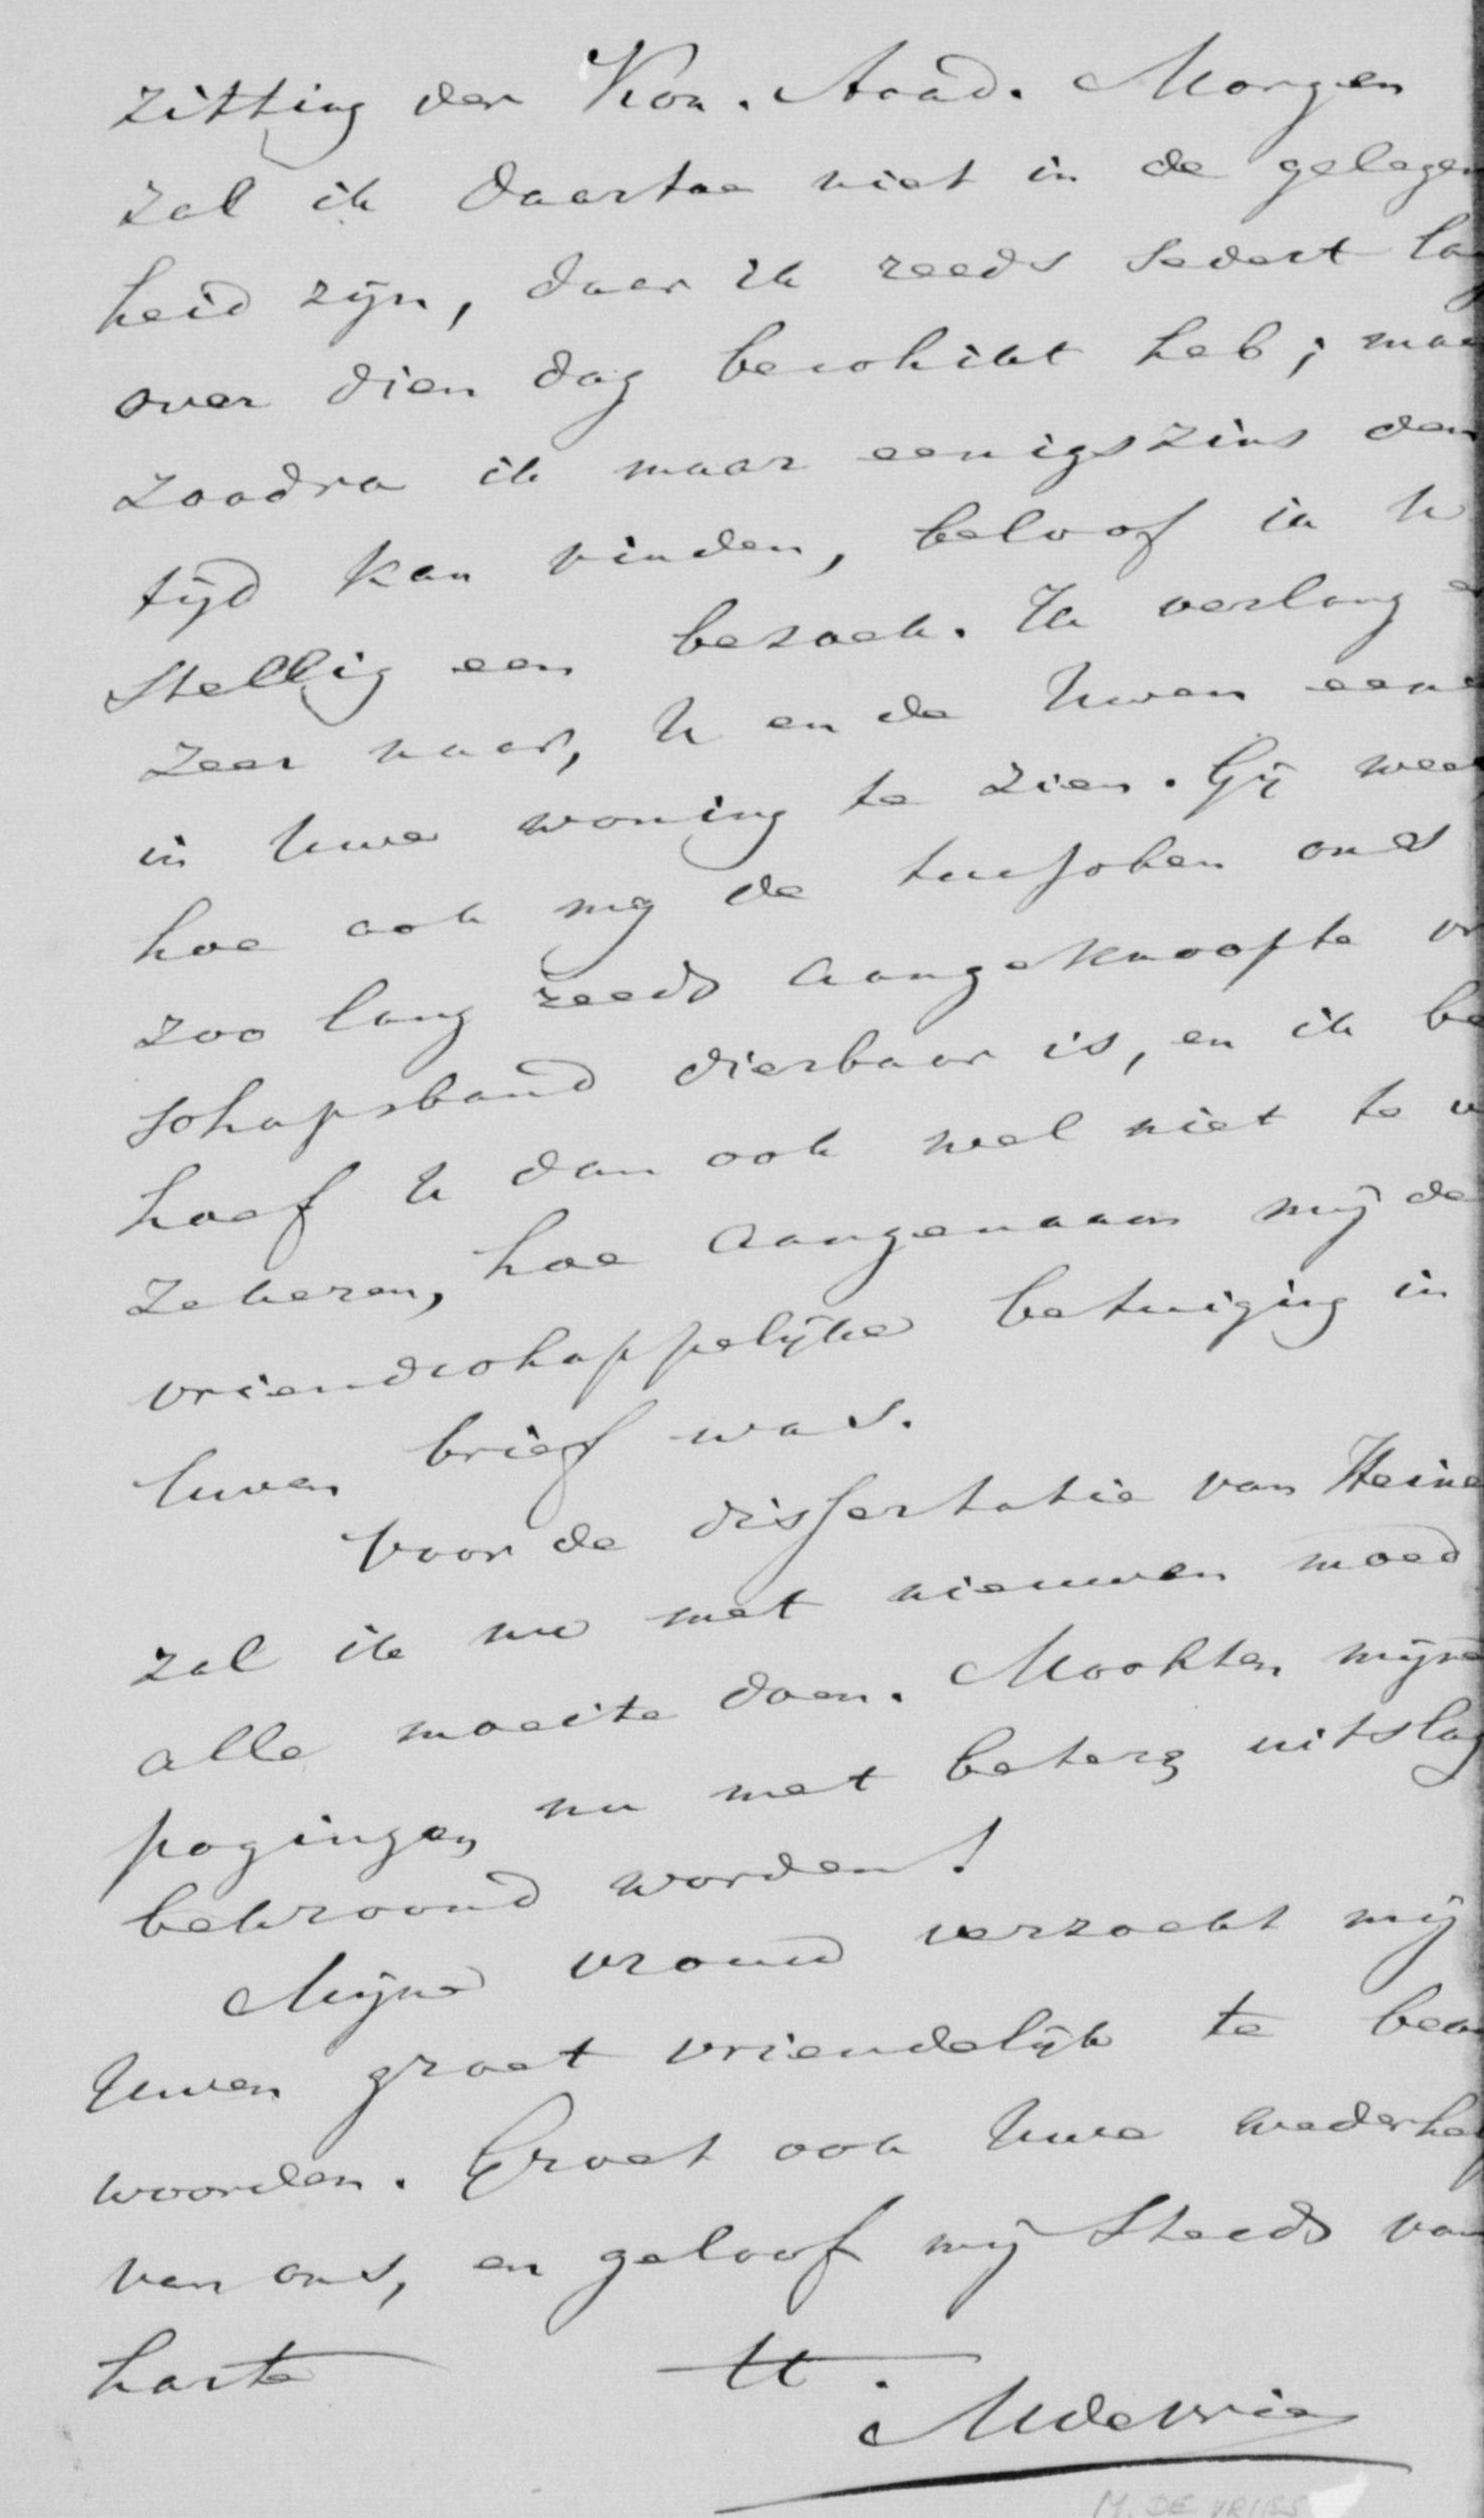 zitting der Kon. Acad. Morgen
zal ik daartoe niet in de gelegen
heid zijn, daar ik reeds sedert la
over dien dag beschikt heb; maa
zoodra ik maar eenigszins den
tijd kan vinden, beloof ik U
stellig een bezoek. Ik verlang e
zeer naar, U en de Uwen eens
in Uwe woning te zien. Gij wee
hoe ook mij de tusschen ons
zoo lang reeds aangeknoopte vr
schapsband dierbaar is, en ik be
hoef U dan ook wel niet te v
zekeren, hoe aangenaam mij de
vriendschappelijke betuiging in
Uwen brief was.
Voor de dissertatie van Heine
zal ik nu met nieuwen moed
alle moeite doen. Mochten mijne
pogingen nu met beteren uitslag
bekroond worden!
Mijne vrouw verzoekt mij
Uwen groet vriendelijk te bea
woorden. Groet ook Uwe wederhe
van ons, en geloof mij steeds van
harte
tt.
MdeVries
M. DE VRIES